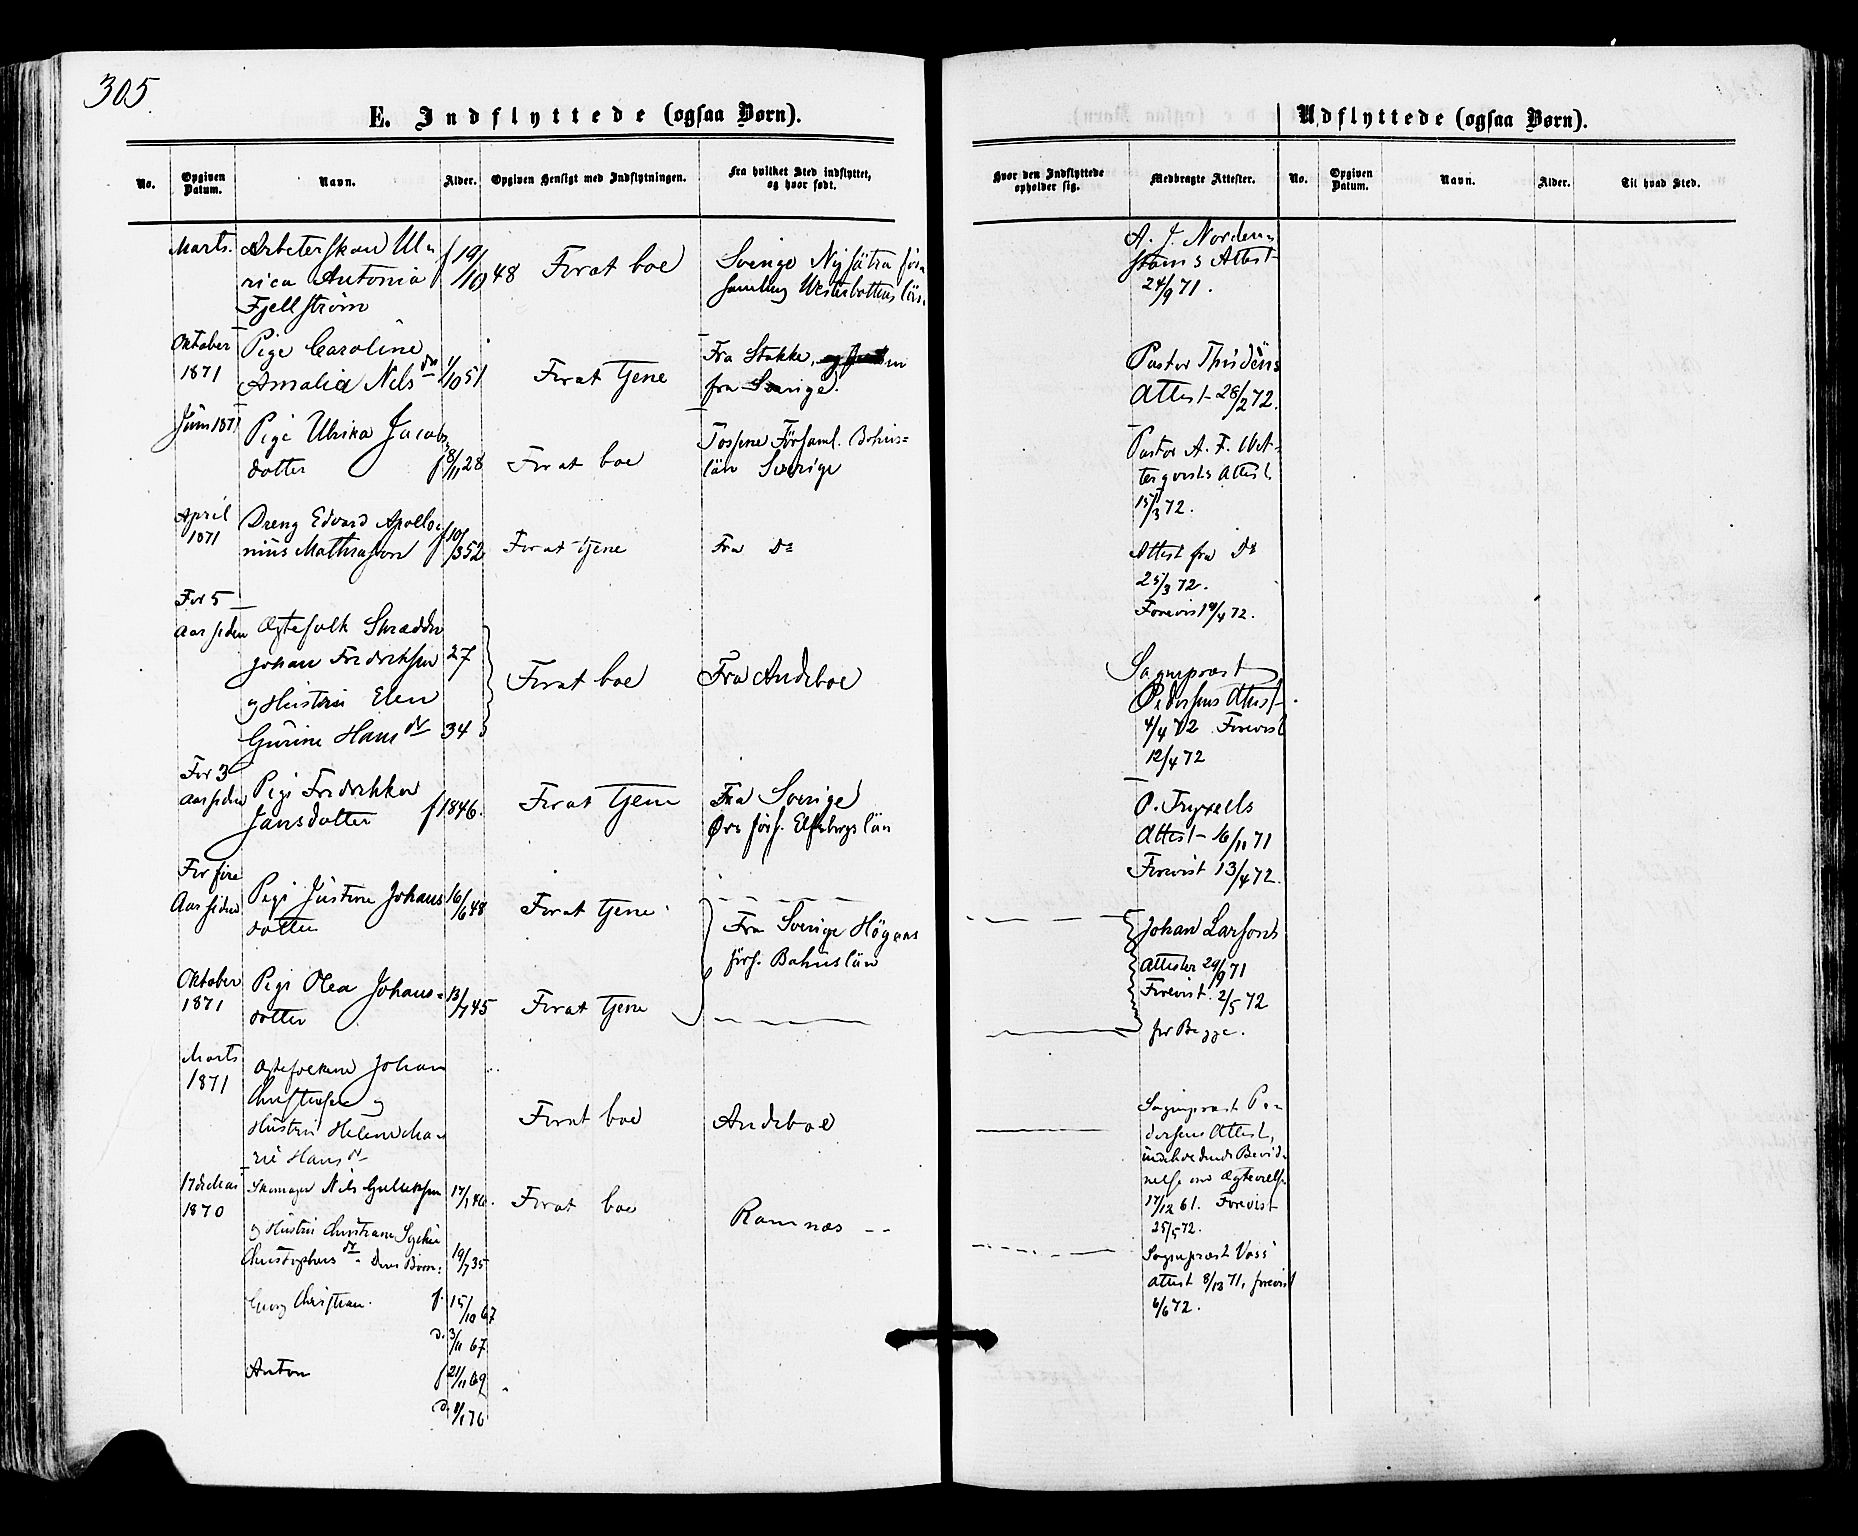 305
E. Indflyttede (ogsaa Børn).
Udflyttede (ogsaa Børn).
No.
Opgiven Datum.
Navn.
Alder.
Opgiven Hensigt med Indflytningen.
Fra hvilket Sted indflyttet, og hvor født.
Hvor den Indflyttede opholder sig.
Medbragte Attester.
No.
Opgiven Datum.
Navn.
Alder.
Til hvad Sted.
Marts. Arbeterskan Ul-
rica Antonia
Fjellstrøm
f 19/10 48
For at boe
Sverige Nysätra för-
samling Westerbottens län.
A. J. Norden-
stams Attest
24/9 71.
Oktober 1871
Pige Caroline
Amalia Nilsdr
1/10 51
For at tjene
Fra Stokke,
fra Sverige.
Pastor Thidéns
Attest 28/2 72.
Juni 1871
Pige Ulrika Jacobs
dotter
f 8/11 28
For at boe
Tossene Församl. Bohus-
län Sverige
Pastor A. F. Wet-
terqvists Attest
15/3 72.
April 1871
Dreng Edvard Apollo-
nius Mathiasson
f 10/3 52
For at tjene
Fra Do
Attest fra Do
25/3 72.
Forevist 19/4 72.
For 5
Aar siden
Ægtefolk Skrædder
Johan Fredriksen 27
og Hustru Elen
Gurine Hansdr 34
For at boe
Fra Andeboe
Sognepræst
Pedersens Attest
4/4 72 Forevist
12/4 72
For 3
Aar siden
Pige Fredrikka
Jansdotter f 1846.
For at tjene
Fra Sverige
Örs förs. Elfsborgs län
P. Fryxells
Attest 16/11 71
Forevist 13/4 72.
For fire
Aar siden
Pige Justine Johans
dotter
16/6 48
For at tjene
Fra Sverige Högens
förs. Bohuslän
Johan Larsons
Attester 29/9 71
Forevist 2/5 72
for Begge.
Oktober 1871
Pige Olea Johans-
dotter
13/7 45
For at tjene
Marts 1871
Ægtefolkene Johan
Christensen og
Hustru Helene Ma-
rie Hansdr
For at boe
Andeboe
Sognepræst Pe-
dersens Attest,
indeholdende Bevid-
nelse om Ægtevielse
17/12 61. Forevist
25/5 72.
17de Mai 1870
Skomager Nils Gulliksen 17/1 40.
og Hustru Christiane Sophie
Christophersdr - Deres Børn: 19/7 35
Georg Christian. f. 15/10 67
d. 3/11 67
Anton f 21/11 69
d. 8/1 70
For at boe
Ramnæs
Sognepræst Voss'
Attest 8/12 71, forevist
6/6 72.